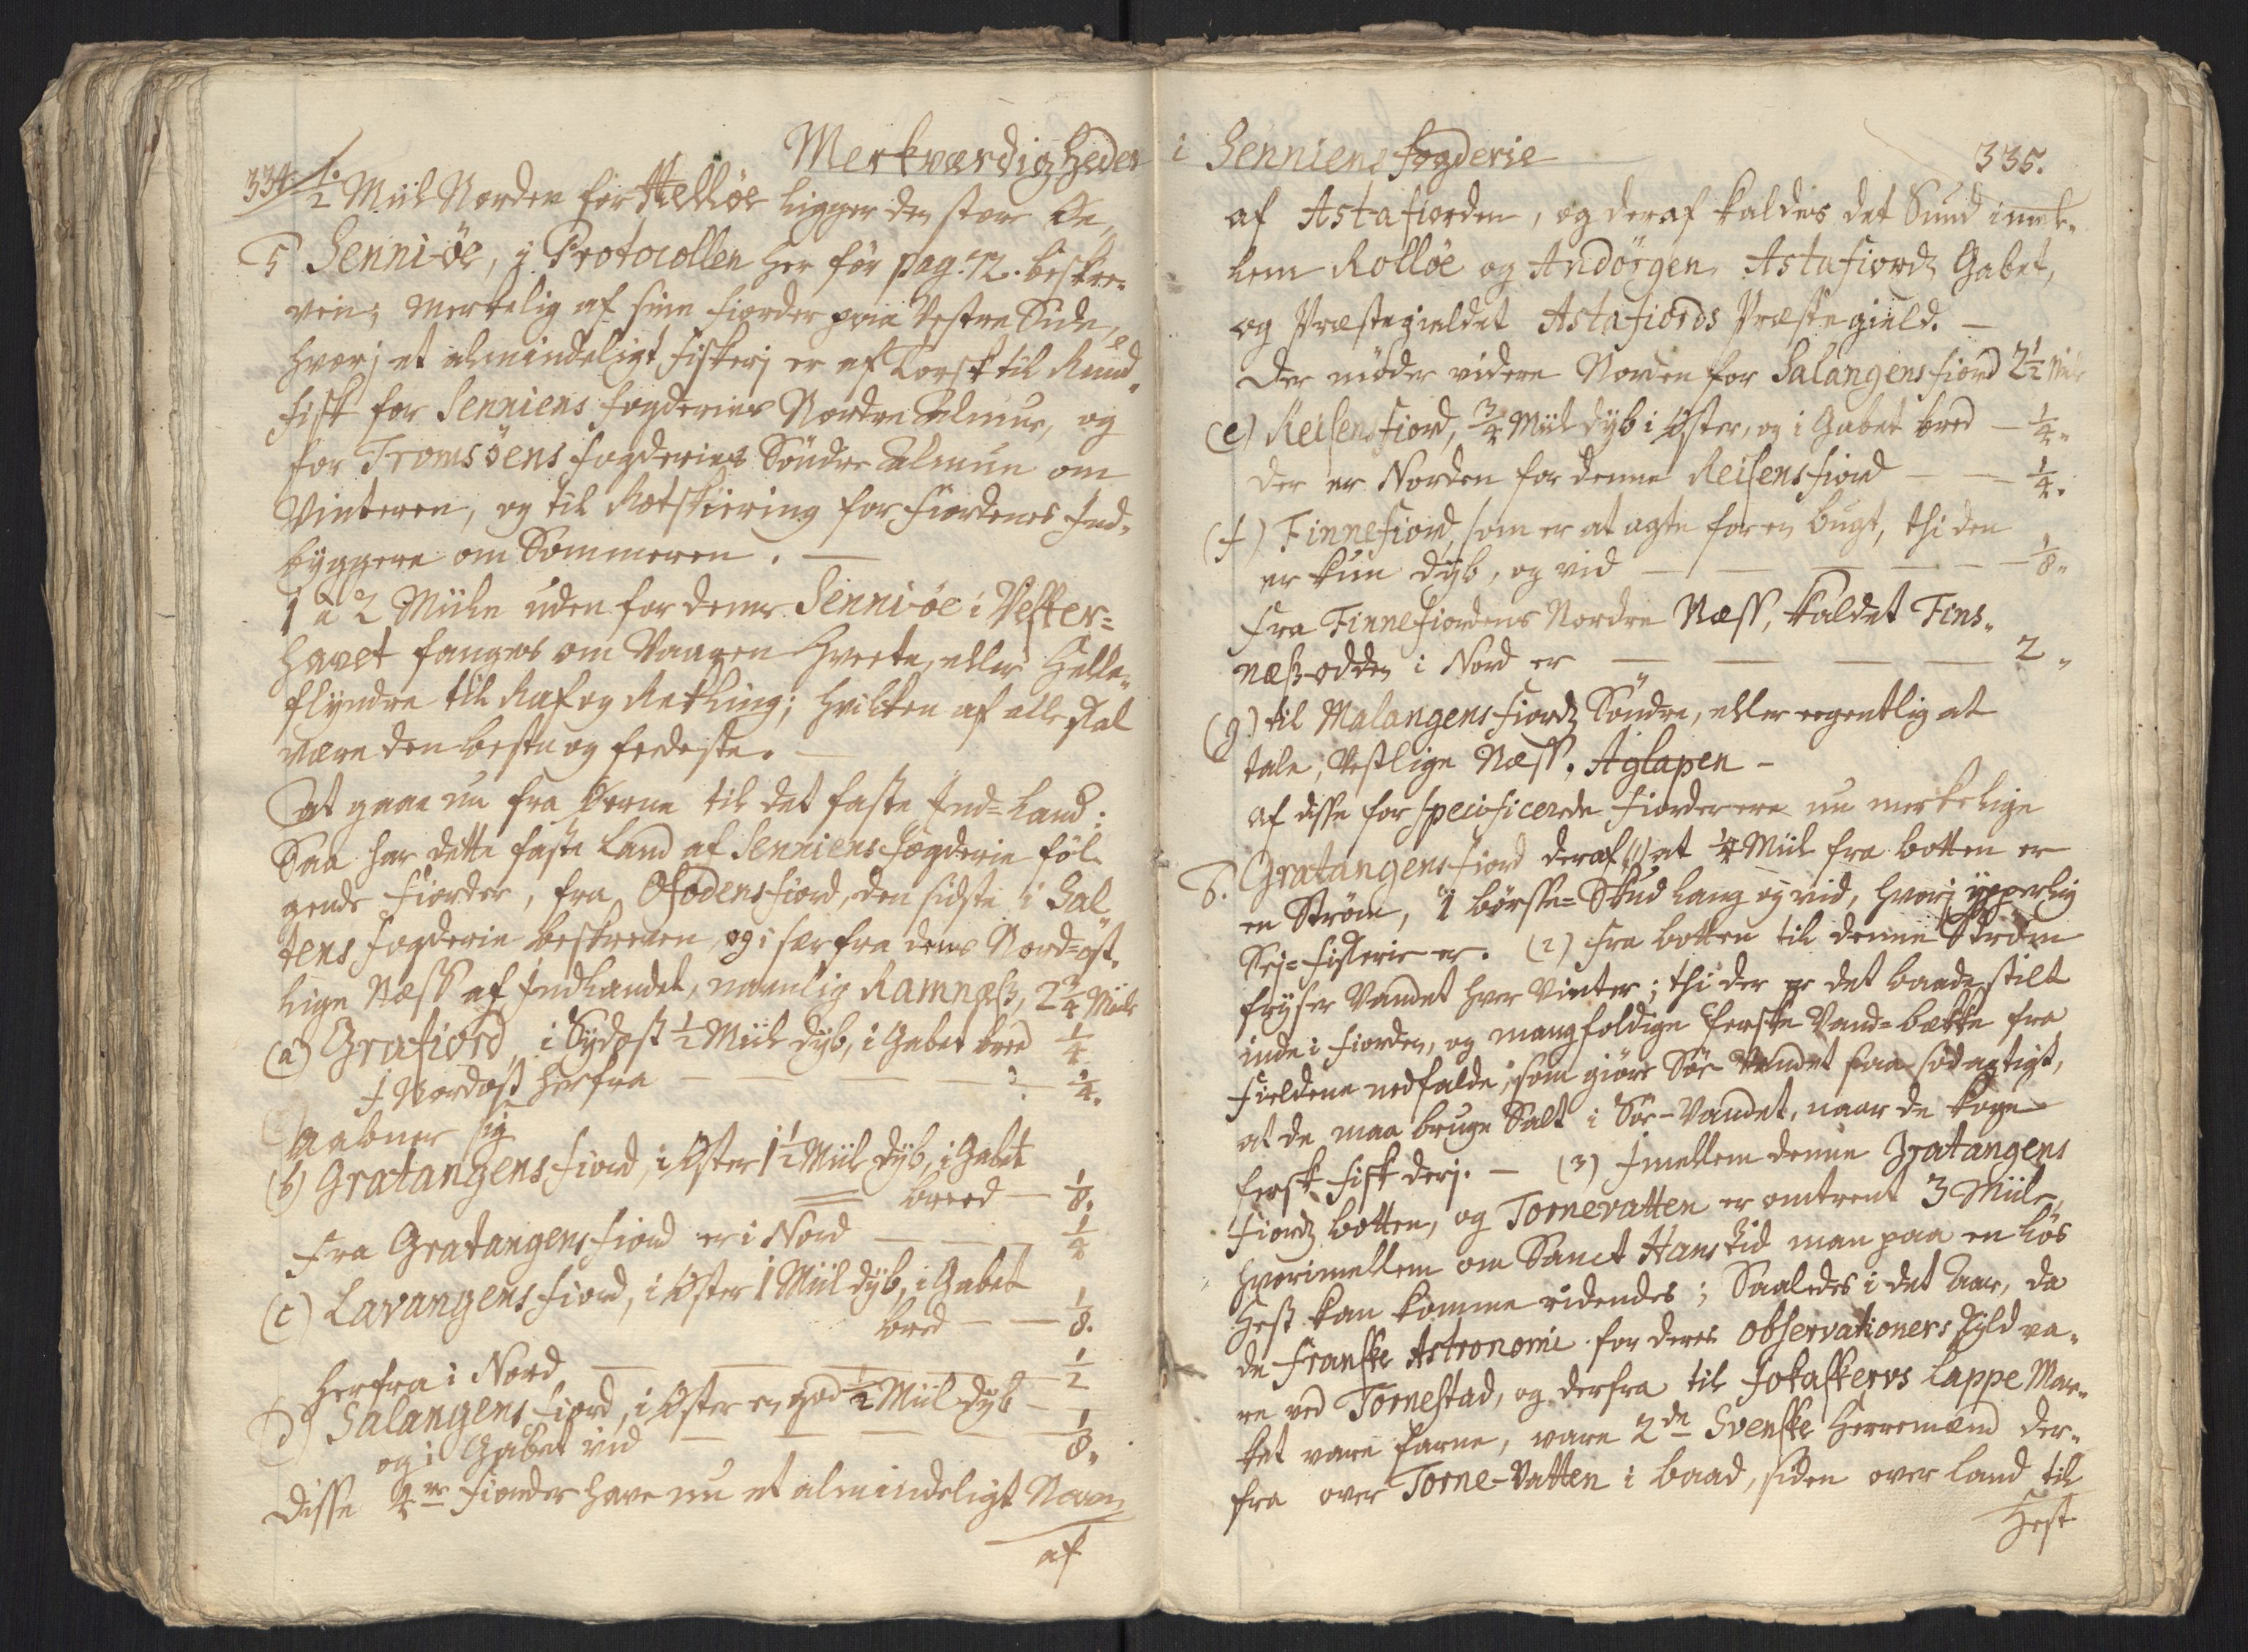 Merkværdigheder
334.
½ Miil Norden for Helløe ligger den store Øe,
5 Senni-öe, i Protocollen her för pag: 72. beskre-
ven; merkelig af sine Fiorder paa Vestre Side,
hvorj et almindeligt Fiskerj er af Torsk til Rund-
fisk for Senniens Fogderies Nordre Almue, og
for Tromsöens Fogderies Söndre Almue om
Vinteren, og til Rotskiering for Fiordenes Ind-
byggere om Sommeren. —
1 a 2 Miile uden for denne Senni-öe i Vester=
havet fanges om Vaaren Hveete, eller Helle-
flyndre til Raf og Rekling; hvilken af alle skal
være den beste og feedeste. —
At gaae nu fra Øerne til det faste Ind=Land:
Saa har dette faste Land af Senniens Fogderie föl-
gende Fiorder, fra Ofodens Fiord, den sidste i Sal-
tens Fogderie beskreven, og i sær fra dens Nord=ost-
lige Næss af Indlandet, nemlig Ramnæss, 2¾ Miile
(a) Grafiord, i Sydost ½ Miil dyb, i Gabet breed ¼
I Nordost herfra — — — — ¼.
Aabner sig
(b) Gratangens Fiord, i Oster 1½ Miil dyb, i Gabet
breed — ⅛.
Fra Gratangens Fiord er i Nord — — — ¼
(c) Lavangens Fiord, i Oster 1 Miil dyb, i Gabet
bred — — ⅛.
Herfra i Nord — — — — ½
(d) Salangens Fiord, i Oster en god ½ Miil dyb —
og i Gabet vid — — — — ⅛.
Disse 4re Fiorder have nu et almindeligt Navn
af
i Senniens Fogderie
335.
af Astafiorden, og deraf kaldes det Sund imel-
lem Rolløe og Andörgen Astafiords Gabet,
og Præstegieldet Astafiords Præstegield. —
Der møder videre Norden for Salangens Fiord 2½ Miile
(e) Reisens Fiord, ¾ Miil dyb i Oster, og i Gabet bred — ¼.
Der er Norden for denne Reisens Fiord — — ¼.
(f) Finnefiord, som er at agte for en Bugt, thi den
er kun dyb, og vid — — — — ⅛.
Fra Finnefiordens Nordre Næss, kaldet Fins-
næss-odden i Nord er — — — — 2.
(g) til Malangens Fiords Söndre, eller egentlig at
tale, Vestlige Næss, Aglapen —
Af disse for specificerede Fiorder ere nu merkelige
6. Gratangens Fiord deraf (1) at ¼ Miil fra Botten er
en Ström, 1 börsse=Skud lang og vid, hvorj ypperlig
Sej=Fiskerie er. (2) Fra Botten til denne Ström
fryser Vandet hver Vinter; thi der er det baade stilt
inde i Fiorden, og mangfoldige ferske Vand=bække fra
Fieldene nedfalde, som giöre Söe-Vandet saa södagtigt,
at de maa bruge Salt i Söe-Vandet, naar de koge
fersk Fisk derj. — (3) Imellem denne Gratangens
Fiords botten, og Tornevatten er omtrent 3 Miile,
hvorimellem om Sanct Hans Tid man paa en lös
Hest kan komme ridendes; Saaledes i det Aar, da
de Franske Astronomi for deres Observationers Skyld va-
re ved Tornestad, og derfra til Jokaskervs Lappe Mar-
ket vare farne, vare 2de Svenske Herremænd der-
fra over Torne-Vatten i Baad, siden over Land til
Hest